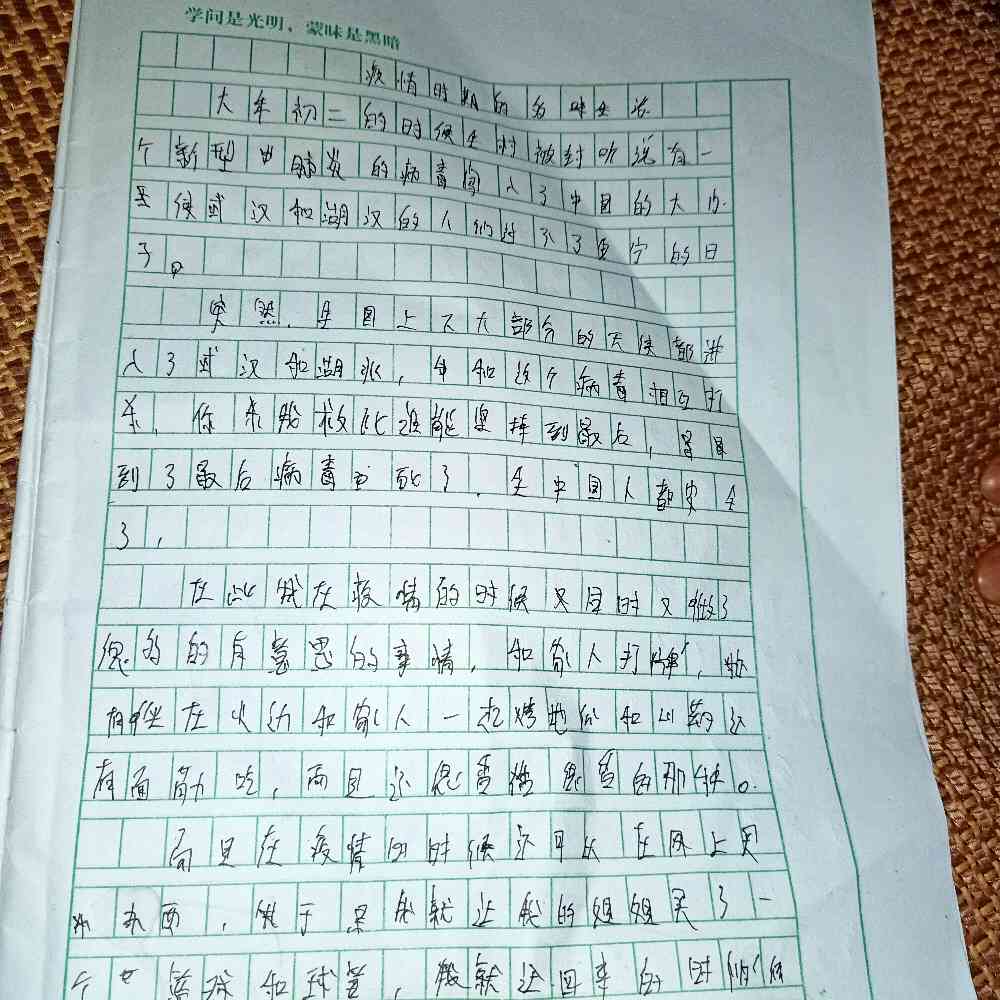 学问是光明，蒙昧是黑暗
疫情时期的多味生活
大年初二的时候全村被封听说有一
个新型中肺炎的病毒闯入了中国的大门.
是使武汉和湖汉的人们过不了安宁的日
子。
突然.全国上下大部分的天使都进
入了武汉和湖北，和这个病毒相互打
杀，你来我救比谁能坚持到最后，
到了最后病毒死了.全中国人都安全
了，
在此我在疫情的时候又同时又做了
很多的有意思的事情，和家人打牌，
有坐在火边和家人一起烤地瓜和山药还
有面筋吃，而且还很香
而且在疫情的时候还可以在网上买
东西，我于是就让我的姐姐买了一
个篮球和球，我就还回来的时候